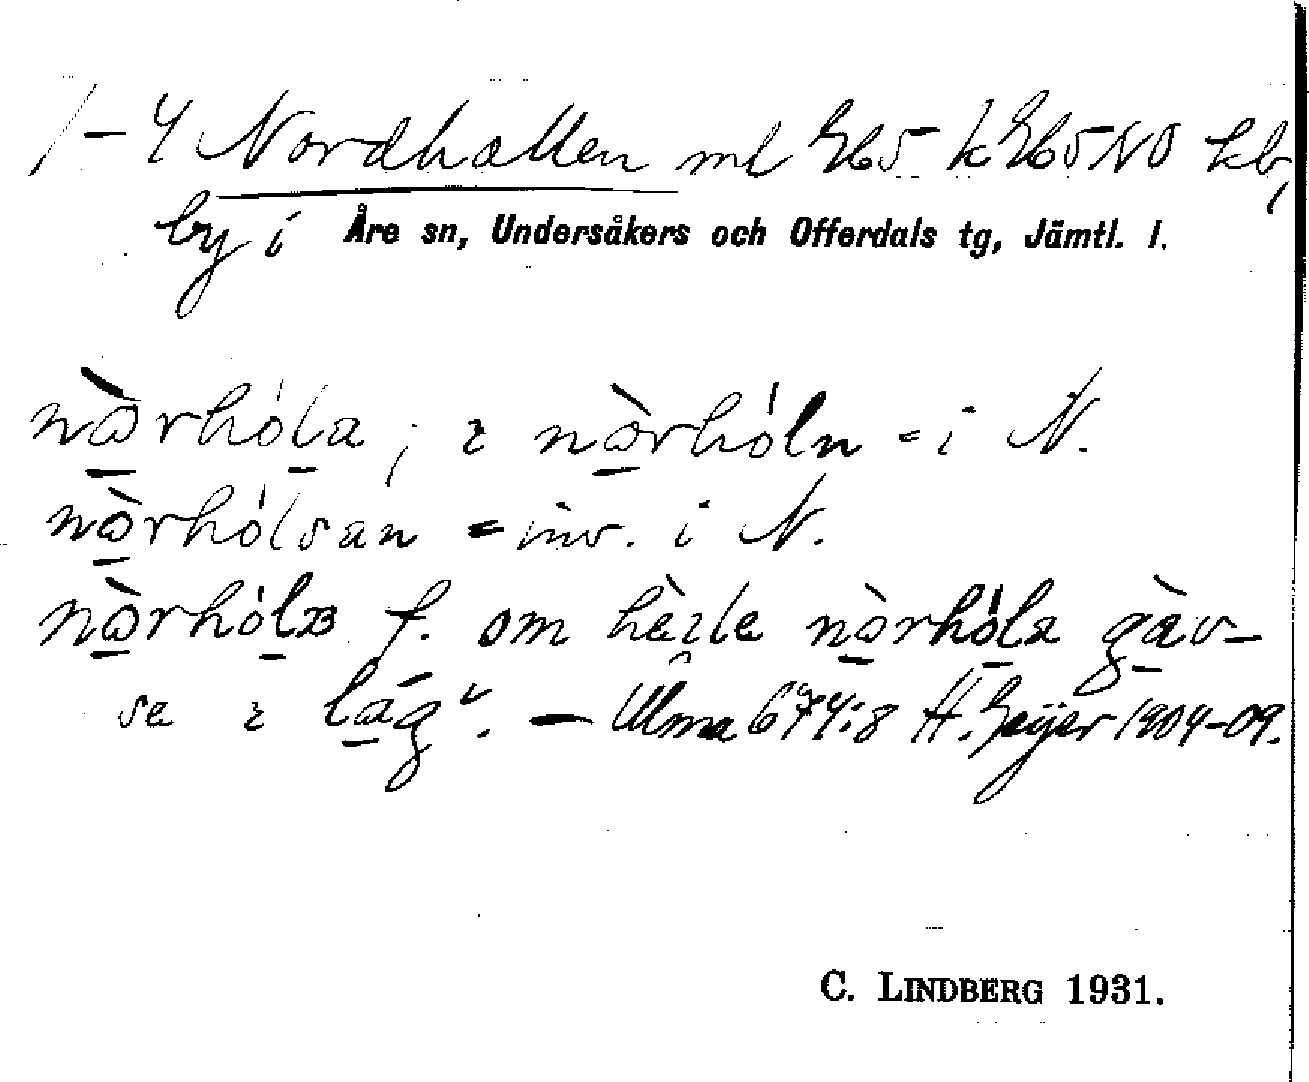 1-4 Nordhallen ml
by i Åre sn, Undersåkers och Offerdals tg, Jämtl. l.
nòrhóla; ɩ nòrhóln = i N.
nòrhólsan = inv. i N.
f. om nòrhóla gàv-
sa ɩ lág. — Ulma 674:8 H. Geijer 1904-09.
C. LINDBERG 1931.